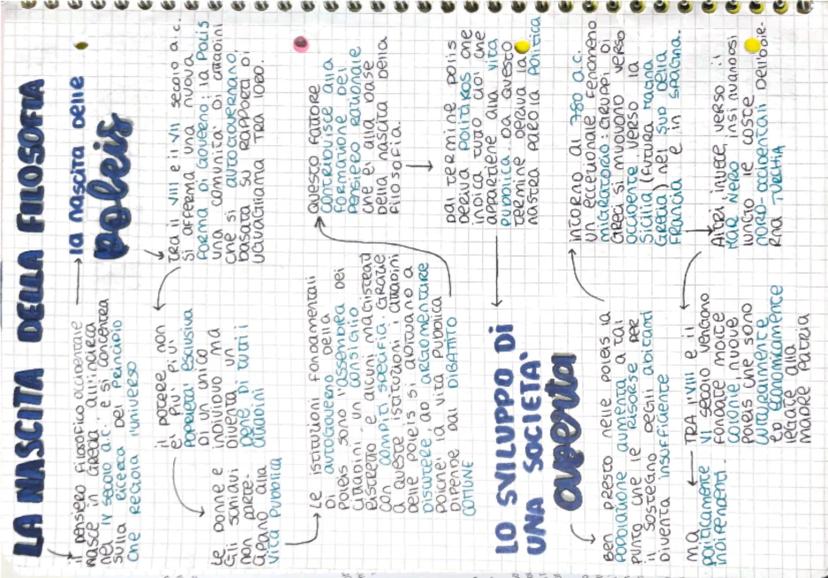 LA NASCITA DELLA FILOSOFIA
il pensiero filosofico occidentale
nasce in Grecia all'incirca
nel IV secolo a.C. e si concentra
sulla ricerca del principio
che regola l'universo
la nascita delle
poleis
Tra il VIII e il VII secolo a.C.
si afferma una nuova
forma di governo: la polis
una comunità di cittadini
che si autogovernano,
basata su rapporti di
uguaglianza tra loro.
il potere non
è più più
proprietà esclusiva
di un unico
individuo ma
diventa un
bene di tutti i
cittadini
Le donne e
gli schiavi
non parte-
cipano alla
vita pubblica
Le istituzioni fondamentali
di autogoverno della
poleis sono l'assemblea dei
cittadini, un consiglio
ristretto e alcuni magistrati
con compiti specifici. Grazie
a queste istituzioni i cittadini
delle poleis si abituano a
discutere ad argomentare
poiché la vita pubblica
dipende dal dibattito
comune
Questo fattore
contribuisce alla
formazione del
pensiero razionale
che è alla base
della nascita della
filosofia.
Dal termine polis
deriva politikos che
indica tutto ciò che
appartiene alla vita
pubblica. Da questo
termine deriva la
nostra parola politica
LO SVILUPPO DI
UNA SOCIETA'
aperta
Ben presto nelle poleis la
popolazione aumenta a tal
punto che le risorse per
il sostegno degli abitanti
diventa insufficiente
intorno al 780 a.C.
un eccezionale fenomeno
migratorio: gruppi di
Greci si muovono verso
occidente verso la
Sicilia (futura Magna
Grecia) nel sud della
Francia e in Spagna.
Altri, invece, verso il
Mar Nero insinuandosi
lungo le coste
nord-occidentali dell'odier-
na Turchia
TRA l'VIII e il
VI secolo vengono
fondate molte
colonie, nuove
poleis che sono
culturalmente
ed economicamente
legate alla
madre patria
ma
politicamente
indipendenti.